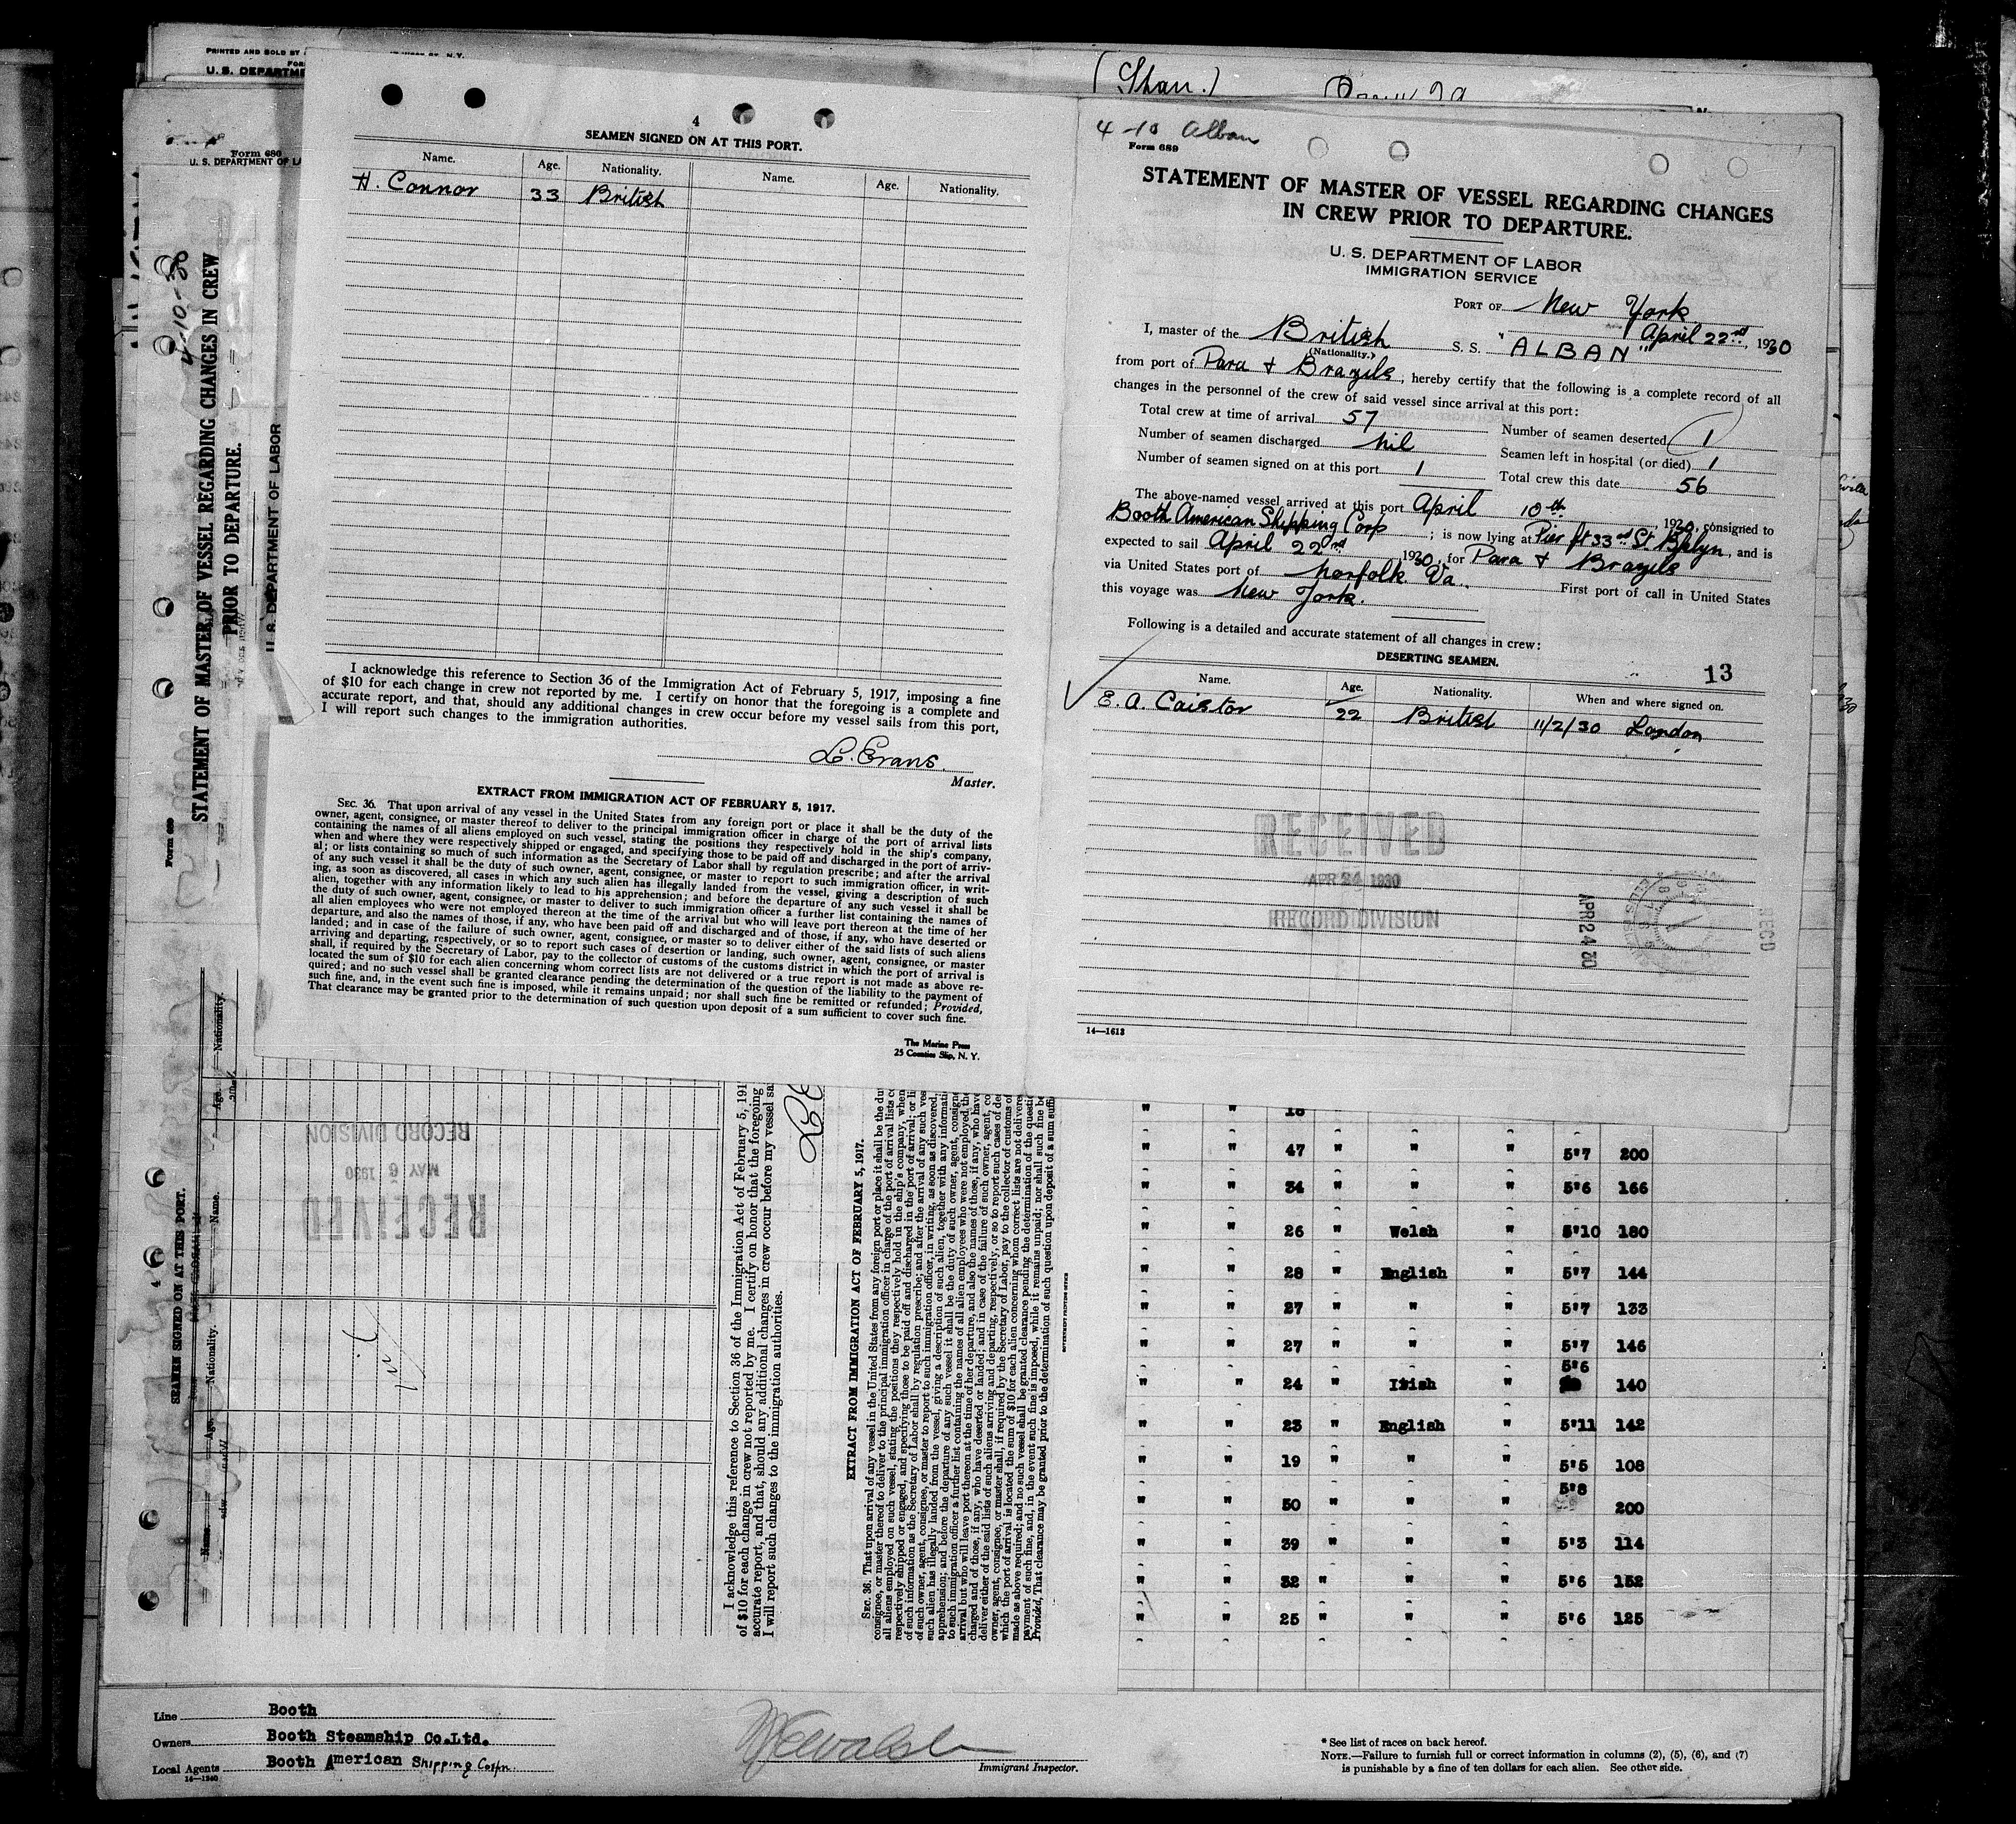 PRINTED AND SOLD BY
U. S. DEPARTME
(Stan.)
4
SEAMEN SIGNED ON AT THIS PORT.
Name. Age. Nationality. Name. Age. Nationality.
H. Connor 33 British
I acknowledge this reference to Section 36 of the Immigration Act of February 5, 1917, imposing a fine
of $10 for each change in crew not reported by me. I certify on honor that the foregoing is a complete and
accurate report, and that, should any additional changes in crew occur before my vessel sails from this port,
I will report such changes to the immigration authorities.
L. Evans.
Master.
EXTRACT FROM IMMIGRATION ACT OF FEBRUARY 5, 1917.
SEC. 36. That upon arrival of any vessel in the United States from any foreign port or place it shall be the duty of the
owner, agent, consignee, or master thereof to deliver to the principal immigration officer in charge of the port of arrival lists
containing the names of all aliens employed on such vessel, stating the positions they respectively hold in the ship's company,
when and where they were respectively shipped or engaged, and specifying those to be paid off and discharged in the port of arriv-
al; or lists containing so much of such information as the Secretary of Labor shall by regulation prescribe; and after the arrival
of any such vessel it shall be the duty of such owner, agent, consignee, or master to report to such immigration officer, in writ-
ing, as soon as discovered, all cases in which any such alien has illegally landed from the vessel, giving a description of such
alien, together with any information likely to lead to his apprehension; and before the departure of any such vessel it shall be
the duty of such owner, agent, consignee, or master to deliver to such immigration officer a further list containing the names of
all alien employees who were not employed thereon at the time of the arrival but who will leave port thereon at the time of her
departure, and also the names of those, if any, who have been paid off and discharged and of those, if any, who have deserted or
landed; and in case of the failure of such owner, agent, consignee, or master so to deliver either of the said lists of such aliens
arriving and departing, respectively, or so to report such cases of desertion or landing, such owner, agent, consignee, or master
shall, if required by the Secretary of Labor, pay to the collector of customs of the customs district in which the port of arrival is
located the sum of $10 for each alien concerning whom correct lists are not delivered or a true report is not made as above re-
quired; and no such vessel shall be granted clearance pending the determination of the question of the liability to the payment of
such fine, and, in the event such fine is imposed, while it remains unpaid; nor shall such fine be remitted or refunded; Provided,
That clearance may be granted prior to the determination of such question upon deposit of a sum sufficient to cover such fine.
The Marine Press
25 Coenties Slip, N. Y.
4-10 Alban
Form 689
STATEMENT OF MASTER OF VESSEL REGARDING CHANGES
IN CREW PRIOR TO DEPARTURE.
U. S. DEPARTMENT OF LABOR
IMMIGRATION SERVICE
PORT OF New York
April 22nd, 1930
I, master of the British S. S. "ALBAN"
(Nationality.)
from port of Para & Brazils, hereby certify that the following is a complete record of all
changes in the personnel of the crew of said vessel since arrival at this port:
Total crew at time of arrival 57 Number of seamen deserted 1
Number of seamen discharged Nil Seamen left in hospital (or died) 1
Number of seamen signed on at this port 1 Total crew this date 56
The above-named vessel arrived at this port April 10th, 1930, consigned to
Booth American Shipping Corp; is now lying at Pier ft 33rd St. Bklyn, and is
expected to sail April 22nd, 1930, for Para & Brazils
via United States port of Norfolk Va. First port of call in United States
this voyage was New York.
Following is a detailed and accurate statement of all changes in crew:
DESERTING SEAMEN. 13
Name. Age. Nationality. When and where signed on.
E. A. Caistor 22 British 11/2/30 London
RECEIVED
APR 24 1930
RECORD DIVISION
APR 24 30
REC'D
14—1613
4-10-30
STATEMENT OF MASTER OF VESSEL REGARDING CHANGES IN CREW
PRIOR TO DEPARTURE.
U. S. DEPARTMENT OF LABOR
Form 689
SEAMEN SIGNED ON AT THIS PORT.
Name. Age. Nationality. Name. Age. Nationality.
Nil
RECEIVED
MAY 6 1930
RECORD DIVISION
I acknowledge this reference to Section 36 of the Immigration Act of February 5, 191
of $10 for each change in crew not reported by me. I certify on honor that the foregoing
accurate report, and that, should any additional changes in crew occur before my vessel sai
I will report such changes to the immigration authorities.
EXTRACT FROM IMMIGRATION ACT OF FEBRUARY 5, 1917.
" " 18
" " 47 " " " 5'7 200
" " 34 " " " 5'6 166
" " 26 " Welsh " 5'10 180
" " 28 " English " 5'7 144
" " 27 " " " 5'7 133
" " 27 " " " 5'7 146
" " 24 " Irish " 5'6 140
" " 23 " English " 5'11 142
" " 19 " " " 5'5 108
" " 50 " " " 5'8 200
" " 39 " " " 5'3 114
" " 32 " " " 5'6 152
" " 25 " " " 5'6 125
Line Booth
Owners Booth Steamship Co.Ltd.
Local Agents Booth American Shipping Corpn.
14—1240
Immigrant Inspector.
* See list of races on back hereof.
NOTE.—Failure to furnish full or correct information in columns (2), (5), (6), and (7)
is punishable by a fine of ten dollars for each alien. See other side.